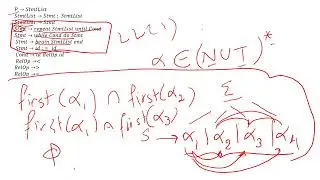 P → StmtList
StmtList → Stmt ; StmtList
StmtList → Stmt
Stmt → repeat StmtList until Cond
Stmt → while Cond do Stmt
Stmt → begin StmtList end
Stmt → id := id
Cond → id RelOp id
RelOp → <
RelOp → >
RelOp → =
LL(1)
α ∈ (NUT)*
first(α₁) ∩ first(α₂)
first(α₁) ∩ first(α₃)
ϕ
Σ
S → α₁ | α₂ | α₃ | α₄